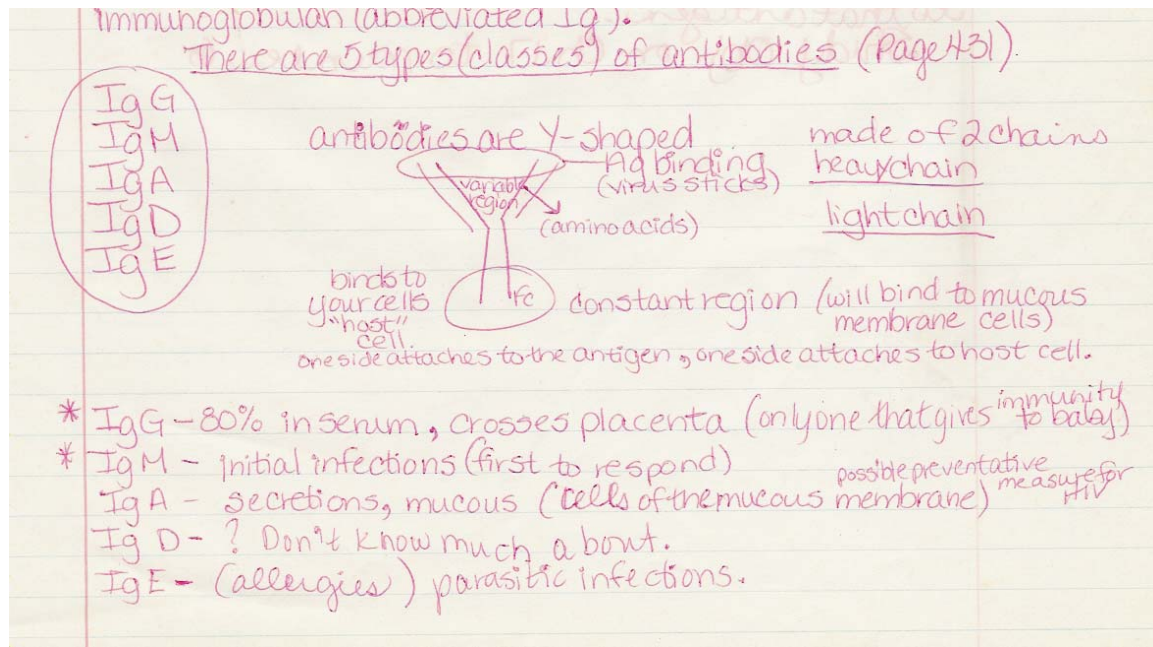 immunoglobulan (abbreviated Ig).
There are 5 types (classes) of antibodies (Page 431).
IgG
IgM
IgA
IgD
IgE
antibodies are Y-shaped
made of 2 chains
heavy chain
light chain
Ag binding
(virus sticks)
variable
region
(amino acids)
binds to
your cells
"host"
cell.
Fc
constant region (will bind to mucous
membrane cells)
one side attaches to the antigen, one side attaches to host cell.
* IgG - 80% in serum, crosses placenta (only one that gives immunity to baby)
* IgM - initial infections (first to respond)
IgA - secretions, mucous (cells of the mucous membrane) possible preventative measure for HIV
IgD - ? Don't know much about.
IgE - (allergies) parasitic infections.